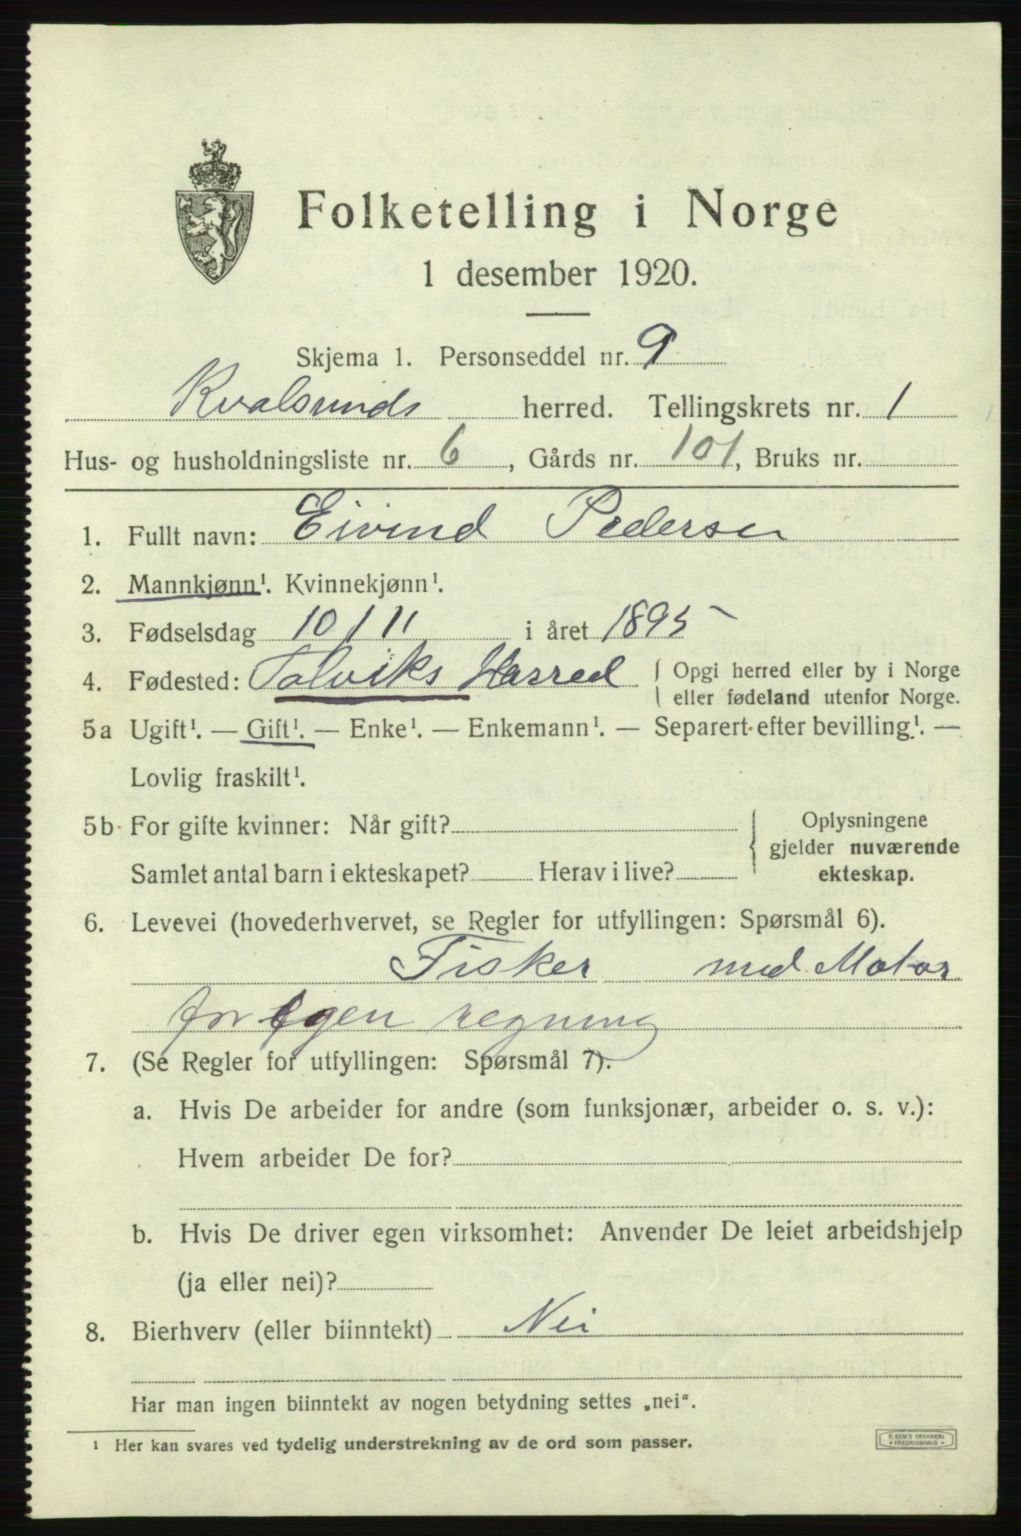 Folketelling i Norge
1 desember 1920.
Skjema 1. Personseddel nr. 9
Kvalsunds herred. Tellingskrets nr. 1
Hus- og husholdningsliste nr. 6, Gårds nr. 101, Bruks nr.
1. Fullt navn: Eivind Pedersen
2. Mannkjønn¹. Kvinnekjønn¹.
3. Fødselsdag 10/11 i året 1895
4. Fødested: Talviks Herred { Opgi herred eller by i Norge
eller fødeland utenfor Norge.
5a Ugift¹. — Gift¹. — Enke¹. — Enkemann¹. — Separert efter bevilling¹. —
Lovlig fraskilt¹.
5b For gifte kvinner: Når gift?
Samlet antal barn i ekteskapet? Herav i live?
{ Oplysningene
gjelder nuværende
ekteskap.
6. Levevei (hovederhvervet, se Regler for utfyllingen: Spørsmål 6).
Fisker med Motor
for egen regning
7. (Se Regler for utfyllingen: Spørsmål 7).
a. Hvis De arbeider for andre (som funksjonær, arbeider o. s. v.):
Hvem arbeider De for?
b. Hvis De driver egen virksomhet: Anvender De leiet arbeidshjelp
(ja eller nei)?
8. Bierhverv (eller biinntekt) Nei
Har man ingen biinntekt av nogen betydning settes „nei“.
¹ Her kan svares ved tydelig understrekning av de ord som passer.